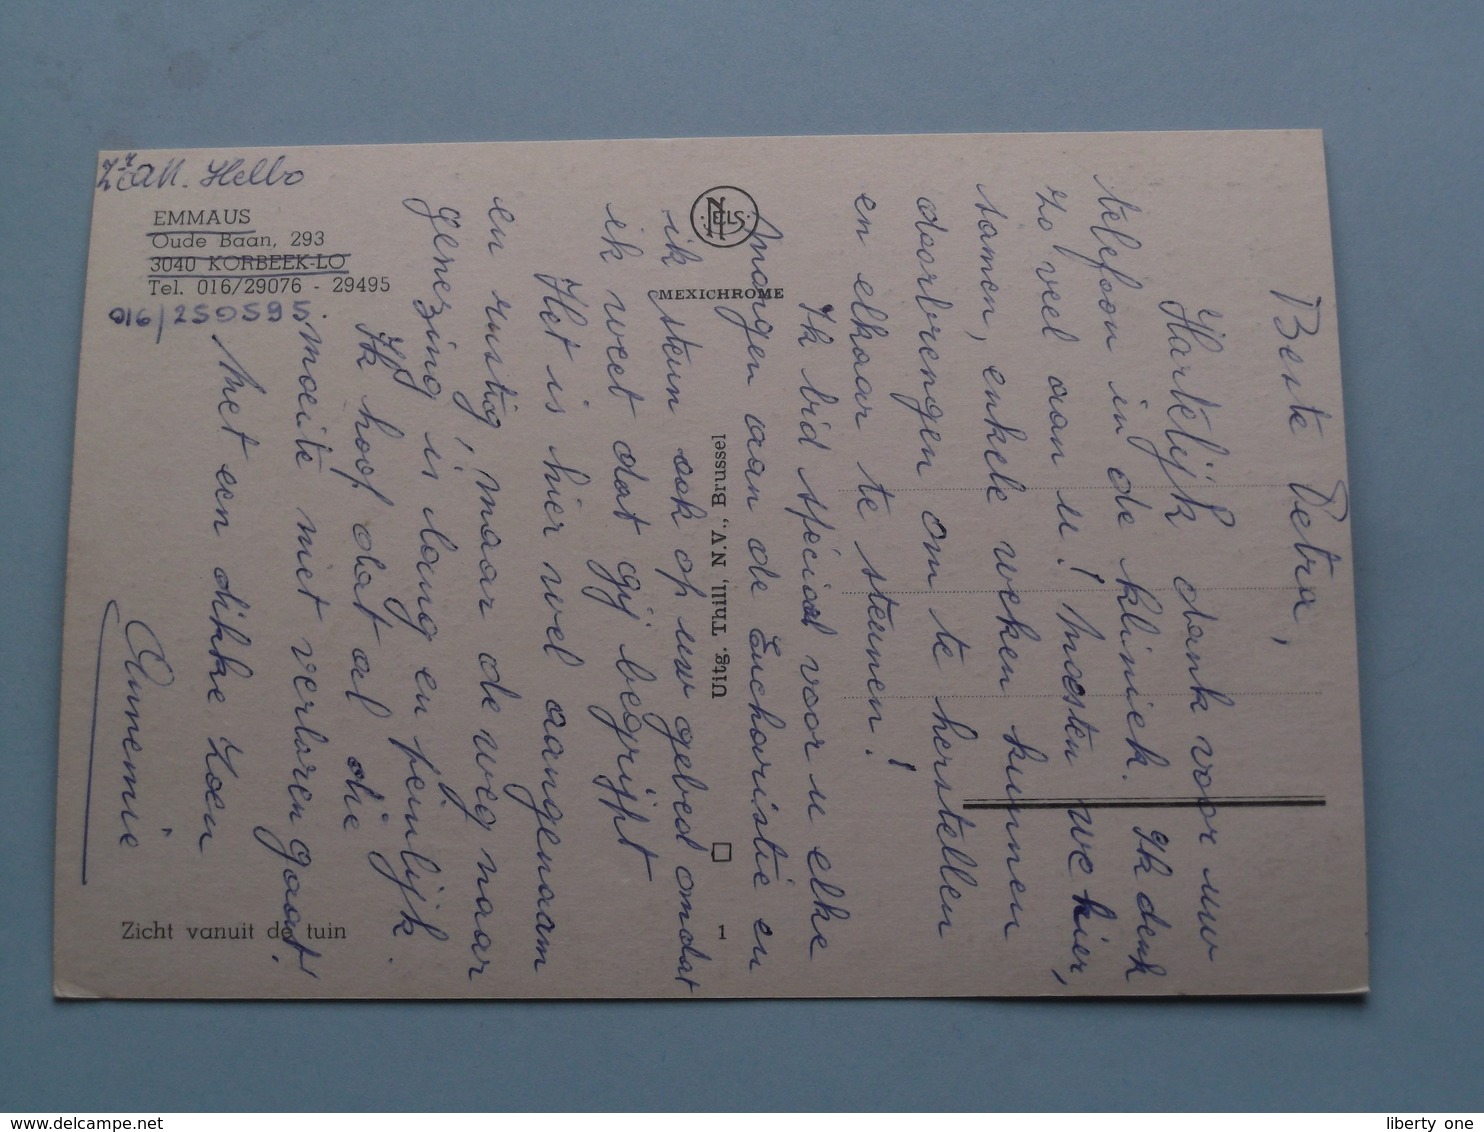 ZZ. AH. Helbo
EMMAUS
Oude Baan, 293
3040 KORBEEK-LO
Tel. 016/29076 - 29495
016/250595.
NELS
MEXICHROME
Uitg. Thill, N.V., Brussel
1
Zicht vanuit de tuin
Beste Petra,
Hartelijk dank voor uw
telefoon in de kliniek. Ik denk
zo veel aan u! Moesten we hier,
samen, enkele weken kunnen
doorbrengen om te herstellen
en elkaar te steunen!
Ik bid speciaal voor u elke
morgen aan de Eucharistie en
ik steun ook op uw gebed omdat
ik weet dat gij begrijpt
Het is hier wel aangenaam
en rustig, maar de weg naar
genezing is lang en pijnlijk.
Ik hoop dat al die
moeite niet verloren gaat!
Met een dikke zoen
Annemie
liberty one